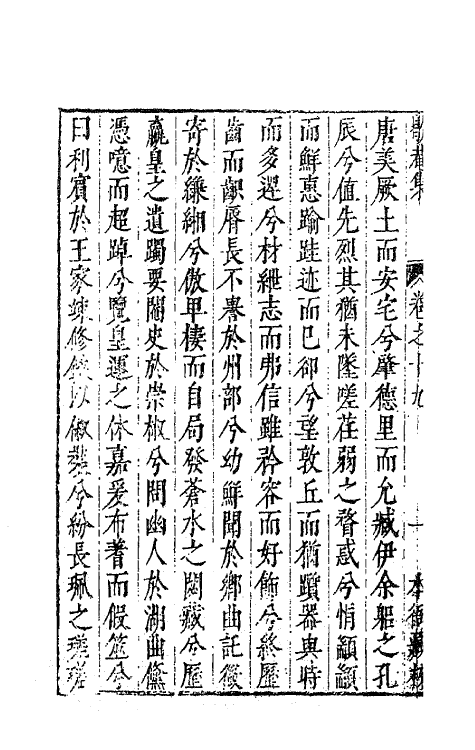 卷之十九
唐美厥土而安宅兮肇德里而允臧伊余軀之孔
辰兮值先烈其猶未墜嗟荏弱之瞀惑兮悄顓顓
而鮮惠踰跬迹而已卻兮望敦丘而猶躓器與時
而多遅兮材紲志而弗信雖矜容而好飾兮終歷
齒而齞脣長不譽於州部兮幼鮮聞於鄉曲託
寄於緗兮倣甲棲而自局發蒼水之閟藏兮歷
嬴皇之遺躅要閹史於崇椒兮問幽人於湖曲儻
憑噫而超踔兮覽皇運之休嘉爰布蓍而假筮兮
曰利賓於王家竦修以俶裝兮紛長珮之瑳瑳